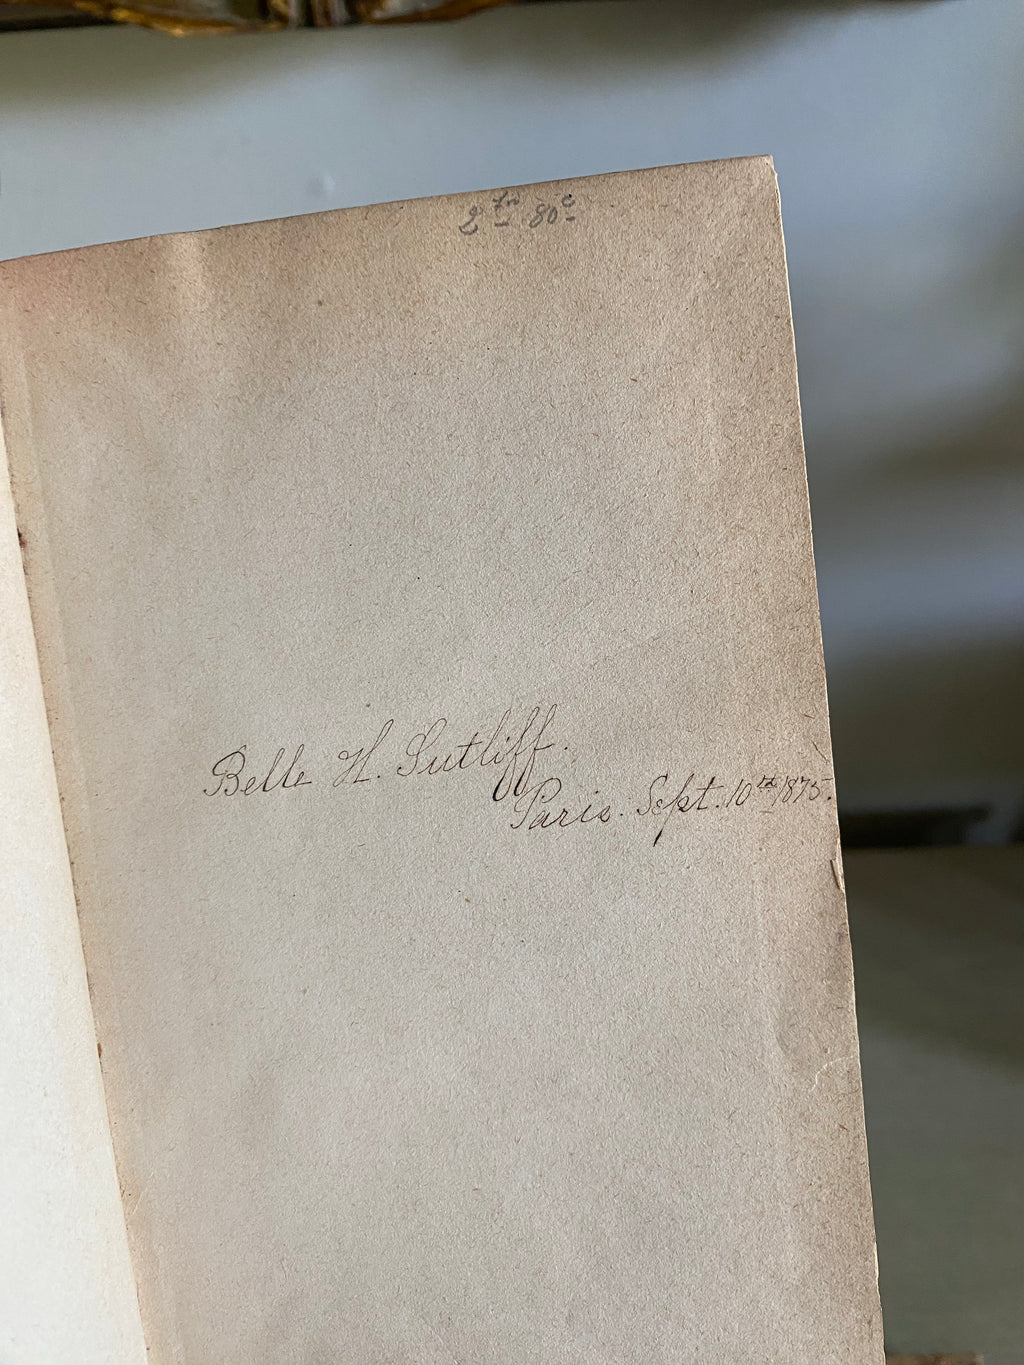 2 fr 80 c
Belle H. Sutliff.
Paris. Sept. 10th 1875.